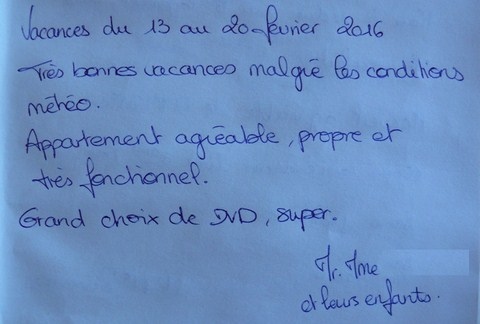 Vacances du 13 au 20 février 2016
Très bonnes vacances malgré les conditions
météo.
Appartement agréable, propre et
très fonctionnel.
Grand choix de DVD, super.
Mr. Mme
et leurs enfants.